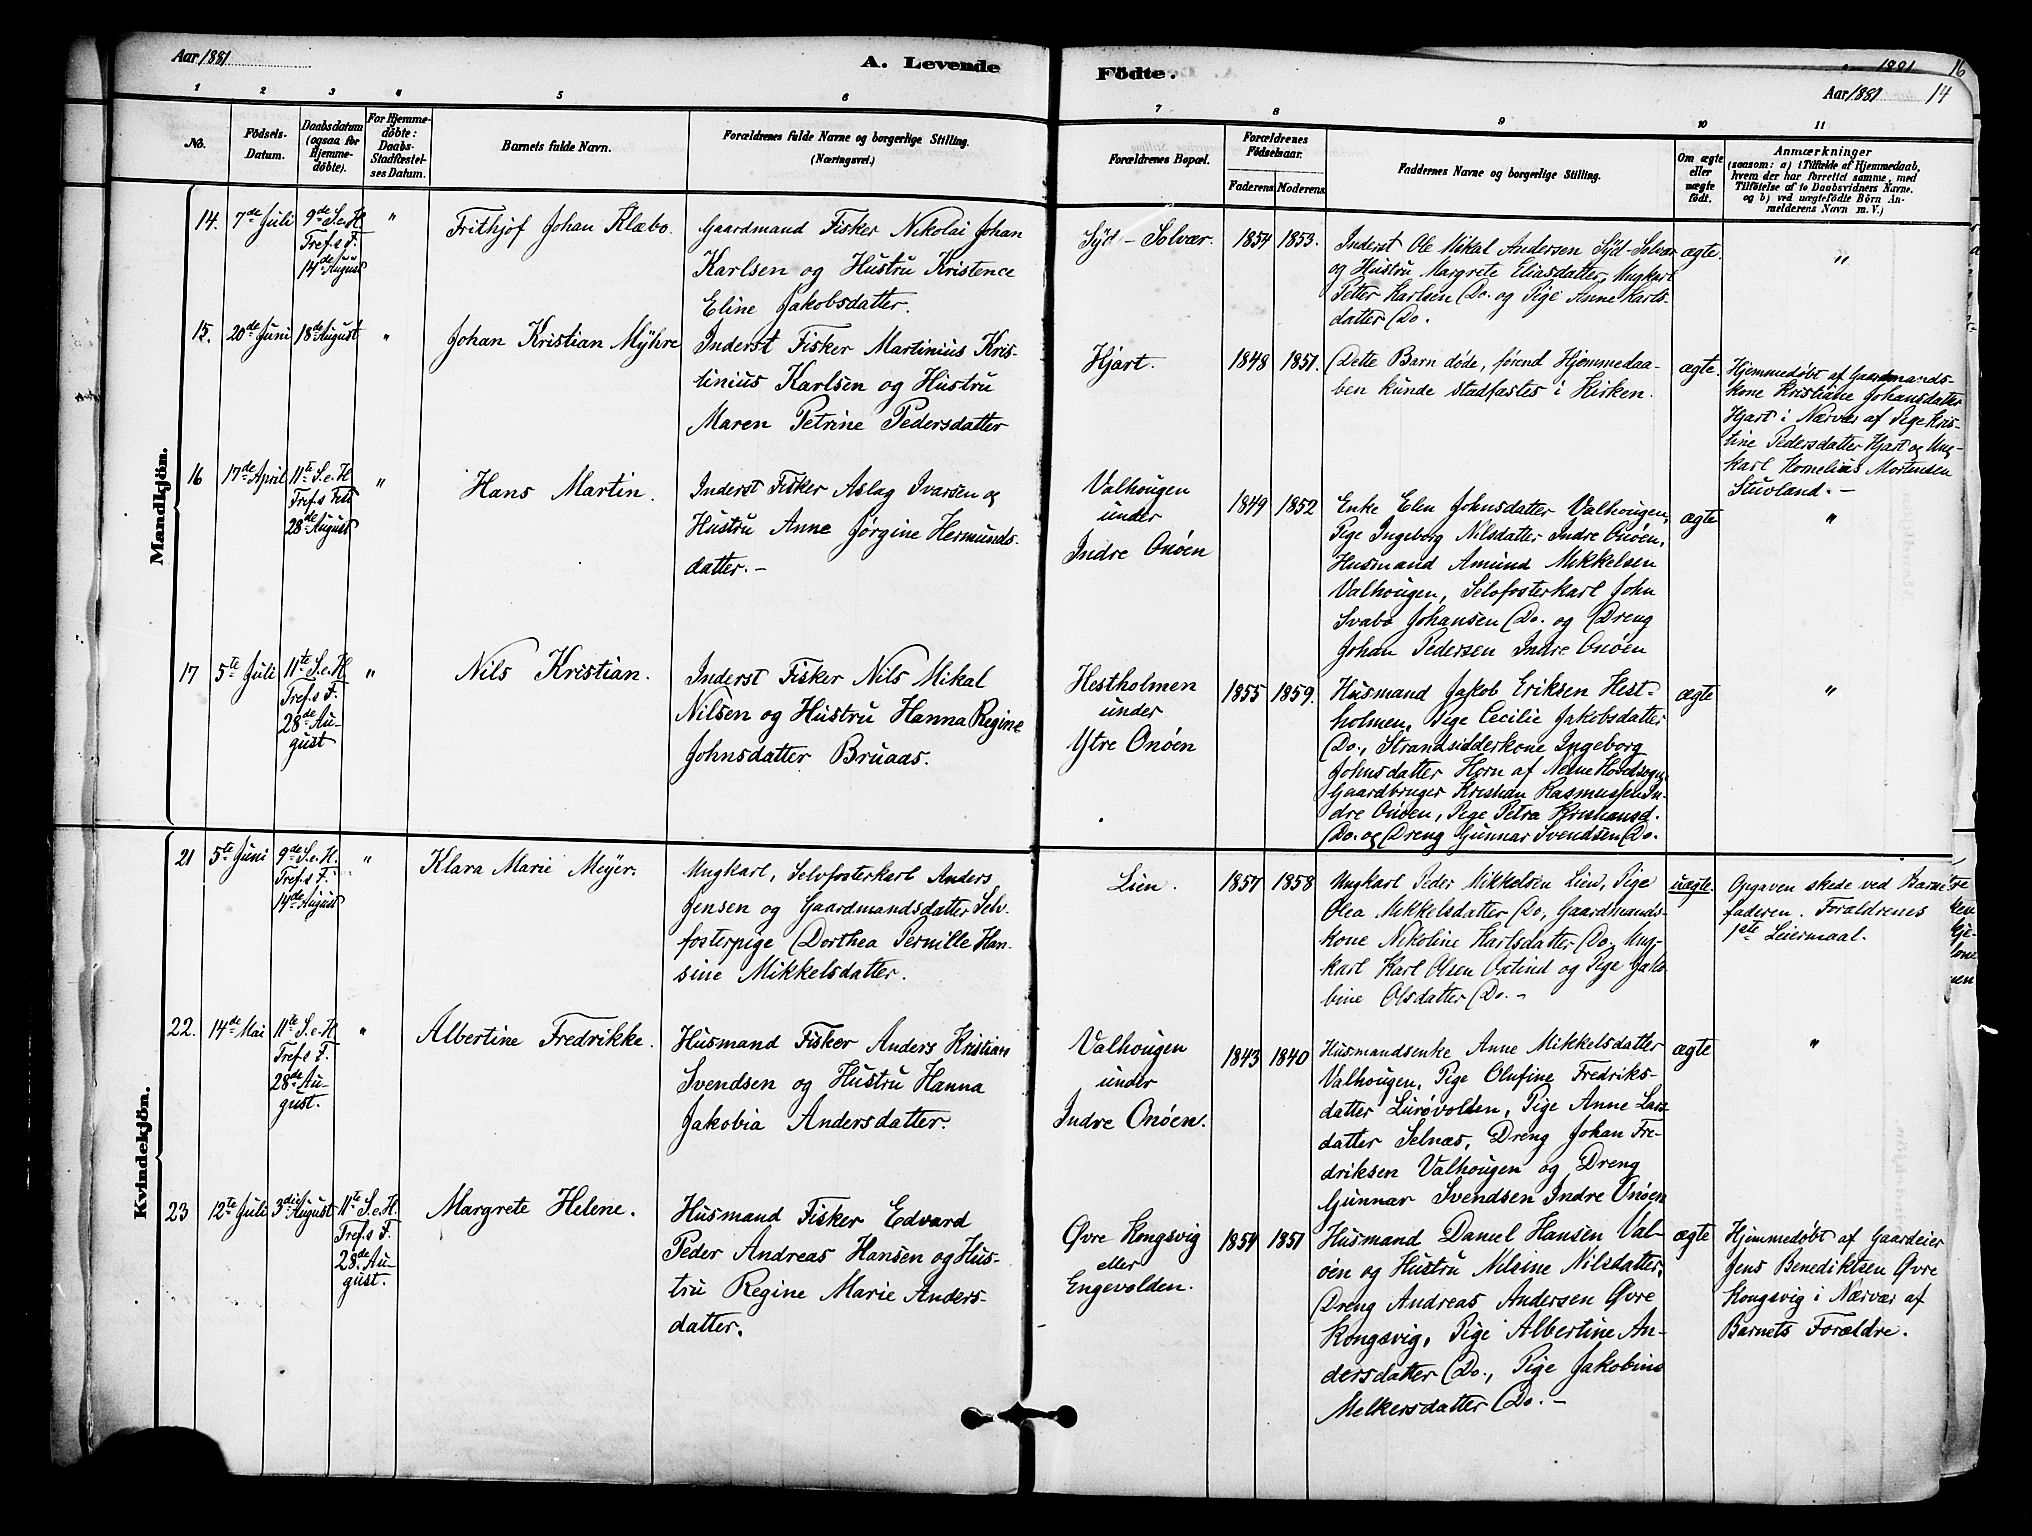 Aar 1881
A. Levende
Födte.
1881
16
Aar 1881
14
1
2
3
4
5
6
7
8
9
10
11
No.
Födsels-
Datum.
Daabsdatum
(ogsaa for
Hjemme-
döbte).
For Hjemme-
döbte:
Daabs-
Stadfæstel-
ses Datum.
Barnets fulde Navn.
Forældrenes fulde Navne og borgerlige Stilling.
(Næringsvei.)
Forældrenes Bopæl.
Forældrenes
Födselsaar.
Faderens.
Moderens.
Faddernes Navne og borgerlige Stilling.
Om ægte
eller
uægte
födt.
Anmærkninger
(saasom: a) i Tilfælde af Hjemmedaab,
hvem der har forrettet samme, med
Tilföielse af to Daabsvidners Navne.
og b) ved uægtefödte Börn An-
melderens Navn m. V.)
Mandkjön.
14.
7de Juli
9de S. e. H.
Tref.s F.
14de August
"
Frithjof Johan Klæbo.
Gaardmand Fisker Nikolai Johan
Karlsen og Hustru Kristence
Eline Jakobsdatter.
Syd-Solvær.
1854
1853.
Inderst Ole Mikal Andersen Syd-Solvær
og Hustru Margrete Eliasdatter, Ungkarl
Petter Karlsen Do. og Pige Anne Karls-
datter Do.
ægte.
"
15.
20de Juni
18de August
"
Johan Kristian Myhre
Inderst Fisker Martinius Kris-
tinius Karlsen og Hustru
Maren Petrine Pedersdatter
Hjart.
1848
1851.
Dette Barn døde, førend Hjemmedaa-
ben kunde stadfæstes i Kirken.
ægte.
Hjemmedøbt af Gaardmands-
kone Kristiane Johansdatter
Hjart i Nærvær af Pige Kris-
tine Pedersdatter Hjart og Ung-
karl Kornelius Mortensen
Stuvland. -
16
17de April
11te S. e. H
Tref.s Fest
28de August
"
Hans Martin.
Inderst Fisker Aslag Ivarsen og
Hustru Anne Jørgine Hermunds-
datter. -
Valhougen
under
Indre Onøen
1849
1852
Enke Elen Johnsdatter Valhougen,
Pige Ingeborg Nilsdatter Indre Onøen,
Husmand Amund Mikkelsen
Valhougen, Selvfosterkarl John
Svabo Johansen Do. og Dreng
Johan Pedersen Indre Onøen
ægte
"
17
5te Juli
11te S. e. H
Tref.s F.
28de Au-
gust
"
Nils Kristian.
Inderst Fisker Nils Mikal
Nilsen og Hustru Hanna Regine
Johnsdatter Bruaas.
Hestholmen
under
Ytre Onøen
1855
1859.
Husmand Jakob Eriksen Hest-
holmen, Pige Cecilie Jakobsdatter
Do., Strandsidderkone Ingeborg
Johnsdatter Horn af Nesne Hovedsogn,
Gaardbruger Kristian Rasmussen In-
dre Onøen, Pige Petra Kristiansd.
Do. og Dreng Gunnar Svendsen Do.
ægte
"
Kvindekjön.
21
5te Juni
9de S. e. H.
Tref.s F.
14de August
"
Klara Marie Meyer.
Ungkarl, Selvfosterkarl Anders
Jensen og Gaardmandsdatter Selv-
fosterpige Dorthea Pernille Han-
sine Mikkelsdatter.
Lien.
1857
1858
Ungkarl Peder Mikkelsen Lien, Pige
Olea Mikkelsdatter Do, Gaardmands-
kone Nikoline Karlsdatter Do. Ung-
karl Karl Olsen Oxtind og Pige Jako-
bine Olsdatter Do. -
uægte.
Opgaven skede ved Barne-
faderen. Forældrenes
1ste Leiermaal.
22.
14de Mai
11te S. e. H
Tref.s F.
28de Au-
gust.
"
Albertine Fredrikke.
Husmand Fisker Anders Kristian
Svendsen og Hustru Hanna
Jakobia Andersdatter.
Valhougen
under
Indre Onøen.
1843
1840
Husmandsenke Anne Mikkelsdatter
Valhougen, Pige Olufine Fredriks-
datter Lurøvolden, Pige Anne Lars-
datter Selnæs, Dreng Johan Fre-
driksen Valhougen og Dreng
Gunnar Svendsen Indre Onøen
ægte
"
23
12te Juli
3die August
11te S. e. H.
Tref.s F.
28de Au-
gust.
Margrete Helene.
Husmand Fisker Edvard
Peder Andreas Hansen og Hus-
tru Regine Marie Anders-
datter.
Øvre Kongsvig
eller
Engevolden.
1854
1851
Husmand Daniel Hansen Val-
øen og Hustru Nilsine Nilsdatter,
Dreng Andreas Andersen Øvre
Kongsvig, Pige Albertine An-
dersdatter Do., Pige Jakobine
Melkersdatter Do. -
ægte
Hjemmedøbt af Gaardeier
Jens Benediktsen Øvre
Kongsvig i Nærvær af
Barnets Forældre.